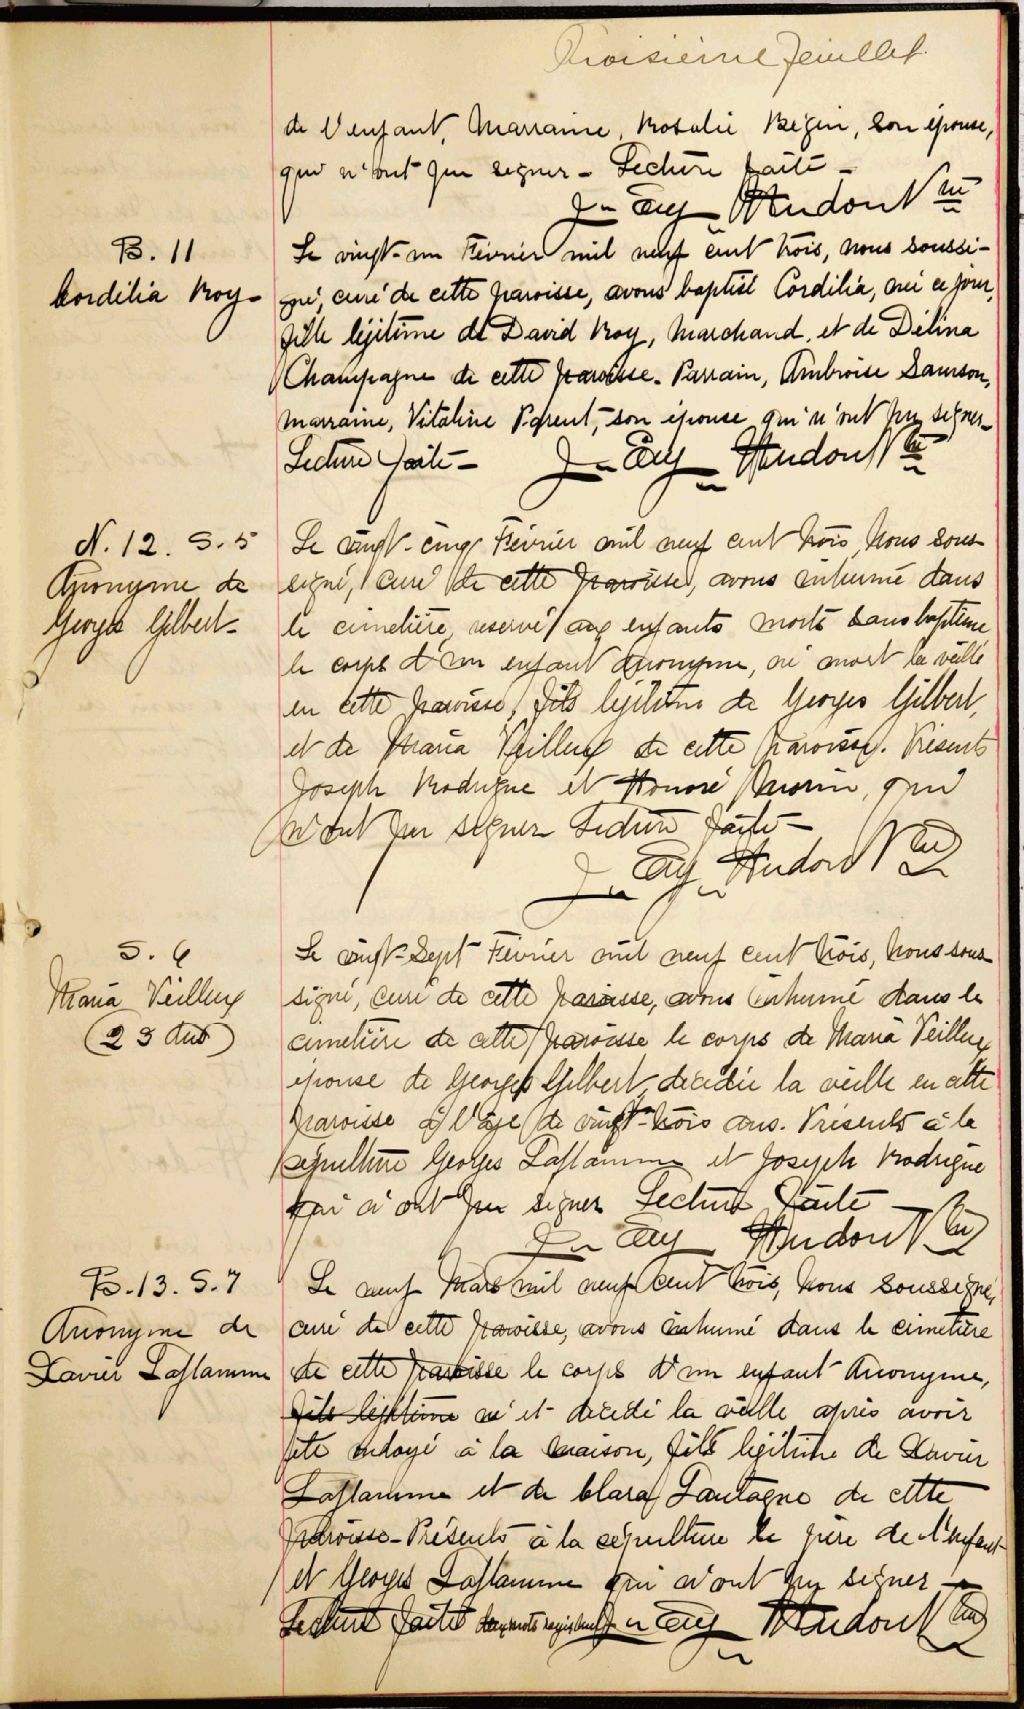 Troisième feuillet
de l'enfant, Marraine, Rosalie Bégin, son épouse,
qui n'ont pu signer - Lecture faite -
J Eug Hudon Ptre
B. 11
Cordélia Roy -
Le vingt-un Février mil neuf cent trois, nous soussi-
gné, curé de cette paroisse, avons baptisé Cordélia, née ce jour,
fille légitime de David Roy, Marchand, et de Délina
Champagne de cette paroisse. Parrain, Ambroise Samson,
marraine, Vitaline Parent, son épouse qui n'ont pu signer -
Lecture faite - J Eug Hudon Ptre
N. 12. S. 5
Anonyme de
Georges Gilbert -
Le vingt-cinq Février mil neuf cent trois, Nous sous
signé, curé de cette paroisse, avons inhumé dans
le cimetière, reservé aux enfants morts sans baptême
le corps d'un enfant anonyme, né mort la veille
en cette paroisse, fils légitime de Georges Gilbert,
et de Maria Veilleux de cette paroisse. Présents
Joseph Rodrigue et Honoré Morin, qui
n'ont pu signer Lecture faite -
J Eug Hudon Ptre
S. 6
Maria Veilleux
(23 ans)
Le vingt-sept Février mil neuf cent trois, Nous sous
signé, curé de cette paroisse, avons inhumé dans le
cimetière de cette paroisse le corps de Maria Veilleux
épouse de Georges Gilbert, décédée la veille en cette
paroisse à l'âge de vingt-trois ans. Présents à la
sépulture Georges Laflamme et Joseph Rodrigue
qui n'ont pu signer Lecture faite
J Eug Hudon Ptre
B. 13. S. 7
Anonyme de
Xavier Laflamme
Le neuf Mars mil neuf cent trois, Nous Soussigné,
curé de cette paroisse, avons inhumé dans le cimetière
de cette paroisse le corps d'un enfant Anonyme,
fils légitime né et décédé la veille après avoir
été ondoyé à la maison, fils légitime de Xavier
Laflamme et de Clara Lantagne de cette
paroisse - Présents à la sépulture le père de l'enfant
et Georges Laflamme qui n'ont pu signer -
Lecture faite deux mots rayés nuls J Eug Hudon Ptre